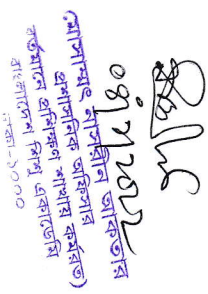 (মোসাম্মৎ নাসরিন আকতার
প্রশাসনিক অফিসার
বর্তমানে প্রশিক্ষণ শাখায় কর্মরত)
বাংলাদেশ শিশু একাডেমি
ঢাকা-১০০০